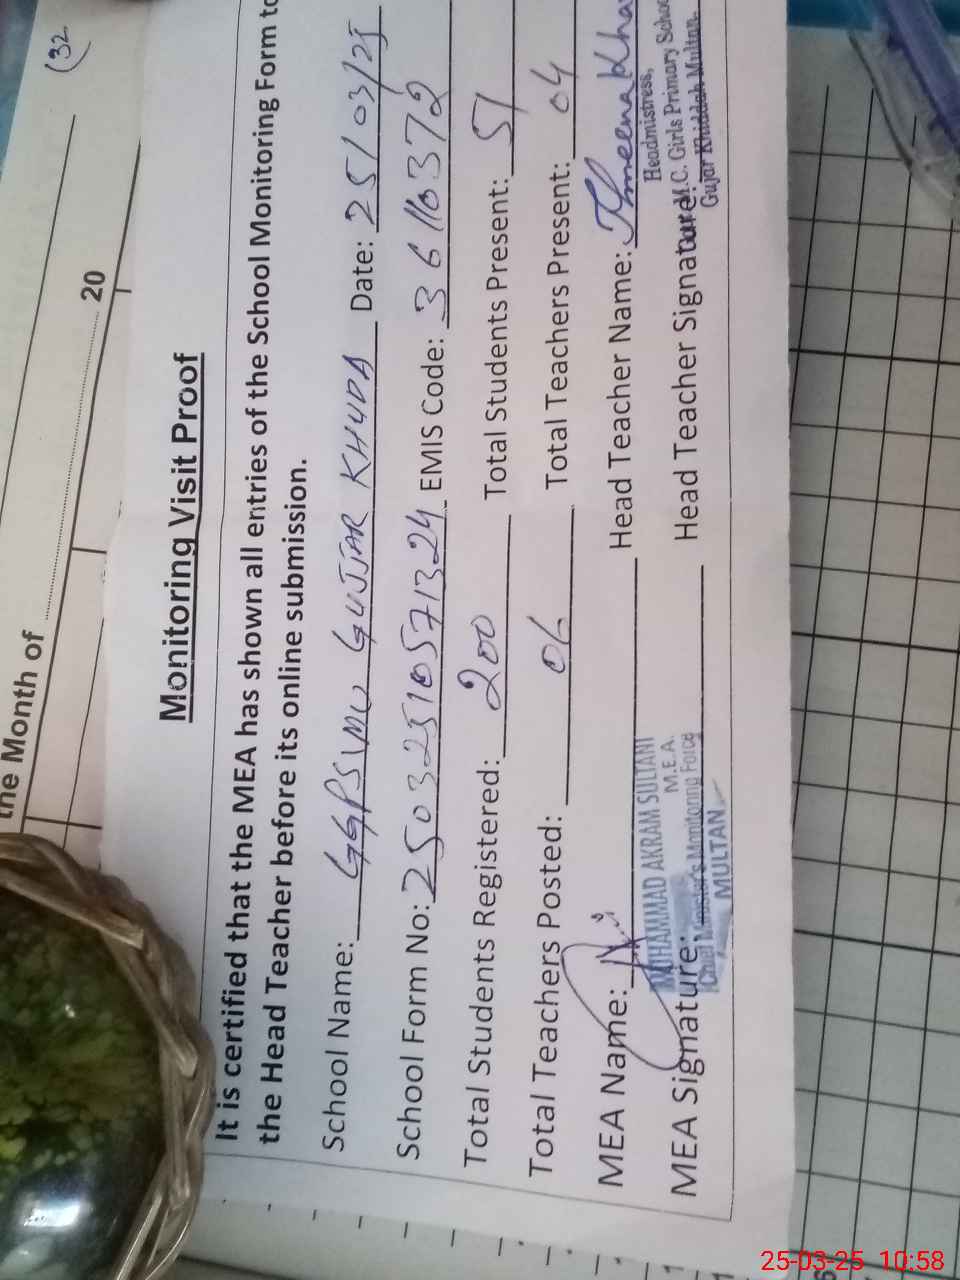 (32
the Month of 20
Monitoring Visit Proof
It is certified that the MEA has shown all entries of the School Monitoring Form to
the Head Teacher before its online submission.
School Name: GGPS MC GUJJAR KHUDA Date: 25/03/25
School Form No: 25032510571324 EMIS Code: 36110372
Total Students Registered: 200 Total Students Present: 51
Total Teachers Posted: 06 Total Teachers Present: 04
MEA Name: Head Teacher Name:
MUHAMMAD AKRAM SULTANI
M.E.A.
Headmistress,
MEA Signature: Head Teacher Signature:
Chief Minister's Monitoring Force
MULTAN
M.C. Girls Primary School
Gujar Khiddah Multan.
25-03-25 10:58